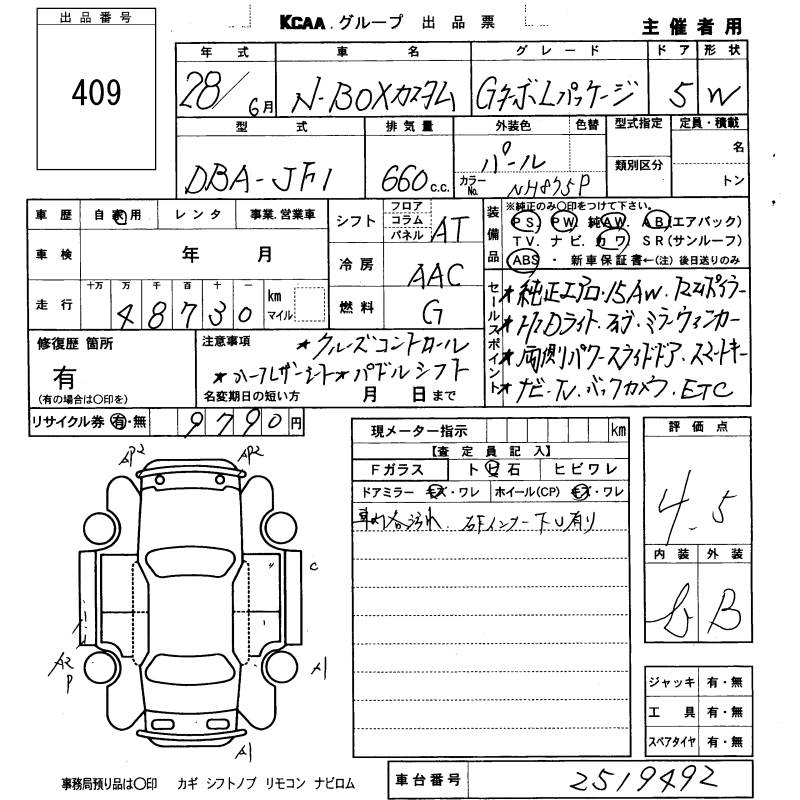 出品番号
409
KCAA.グループ 出品票
主催者用
年式 車名 グレード ドア 形状
28/6月 N-BOXカスタム GターボLパッケージ 5 W
型式 排気量 外装色 色替 型式指定 定員・積載
DBA-JF1 660c.c. パール 名
カラーNo. NH875P 類別区分 トン
車歴 自家用 レンタ 事業.営業車
シフト フロア コラム パネル AT
車検 年 月
冷房 AAC
走行 十万 万 千 百 十 一 km マイル
48730
燃料 G
装備品 ※純正のみ○印をつけて下さい。
PS. PW. 純AW. AB(エアバック)
TV. ナビ. カワ SR(サンルーフ)
ABS ・ 新車保証書←(注)後日送りのみ
セールスポイント
★純正エアロ・15AW.リアスポイラー
★HIDライト・フォグ・ミラーウィンカー
★両側パワースライドドア.スマートキー
★ナビ・TV.バックカメラ.ETC
修復歴 箇所
有
(有の場合は○印を)
注意事項
★クルーズコントロール
★ハーフレザーシート★パドルシフト
名変期日の短い方 月 日まで
リサイクル券 有・無 9790円
現メーター指示 km
【査定員記入】
Fガラス ト ビ 石 ヒビワレ
ドアミラー キズ・ワレ ホイール(CP) キズ・ワレ
車内汚れ
下し有り
評価点
4.5
内装 外装
B
ジャッキ 有・無
工具 有・無
スペアタイヤ 有・無
AP2 AP2
C
A2
P
A1
A1
事務局預り品は○印 カギ シフトノブ リモコン ナビロム
車台番号 2519492